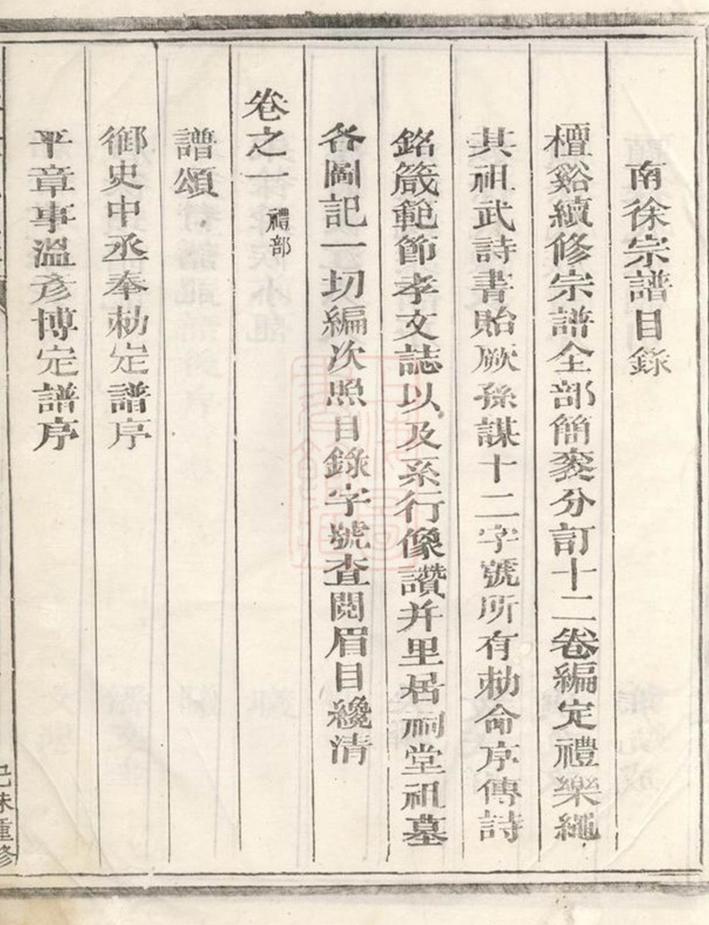 南徐宗譜目錄
檀谿續修宗譜全部簡裘分訂十二卷編定禮樂繩
其祖武詩書貽厥孫謀十二字號所有勅命序傳詩
銘箴範節孝文誌以及系行像讚并里居祠堂祖墓
各圖記一切編次照目錄字號查閱眉目纔清
卷之一 禮部
譜頌
御史中丞奉勅定譜序
平章事溫彥博定譜序
己未重修